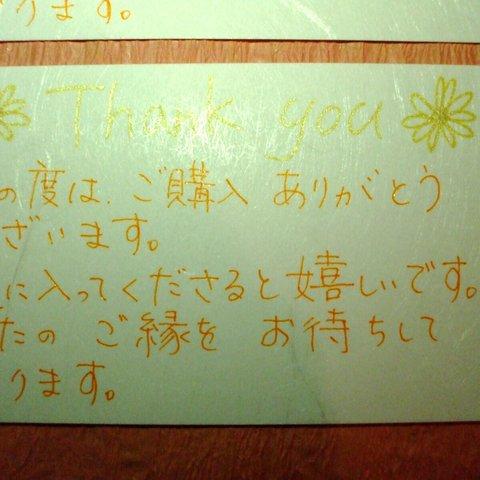 ります。
Thank you
の度は、ご購入 ありがとう
ざいます。
に入ってくださると嬉しいです。
たの ご縁を お待ちして
ります。